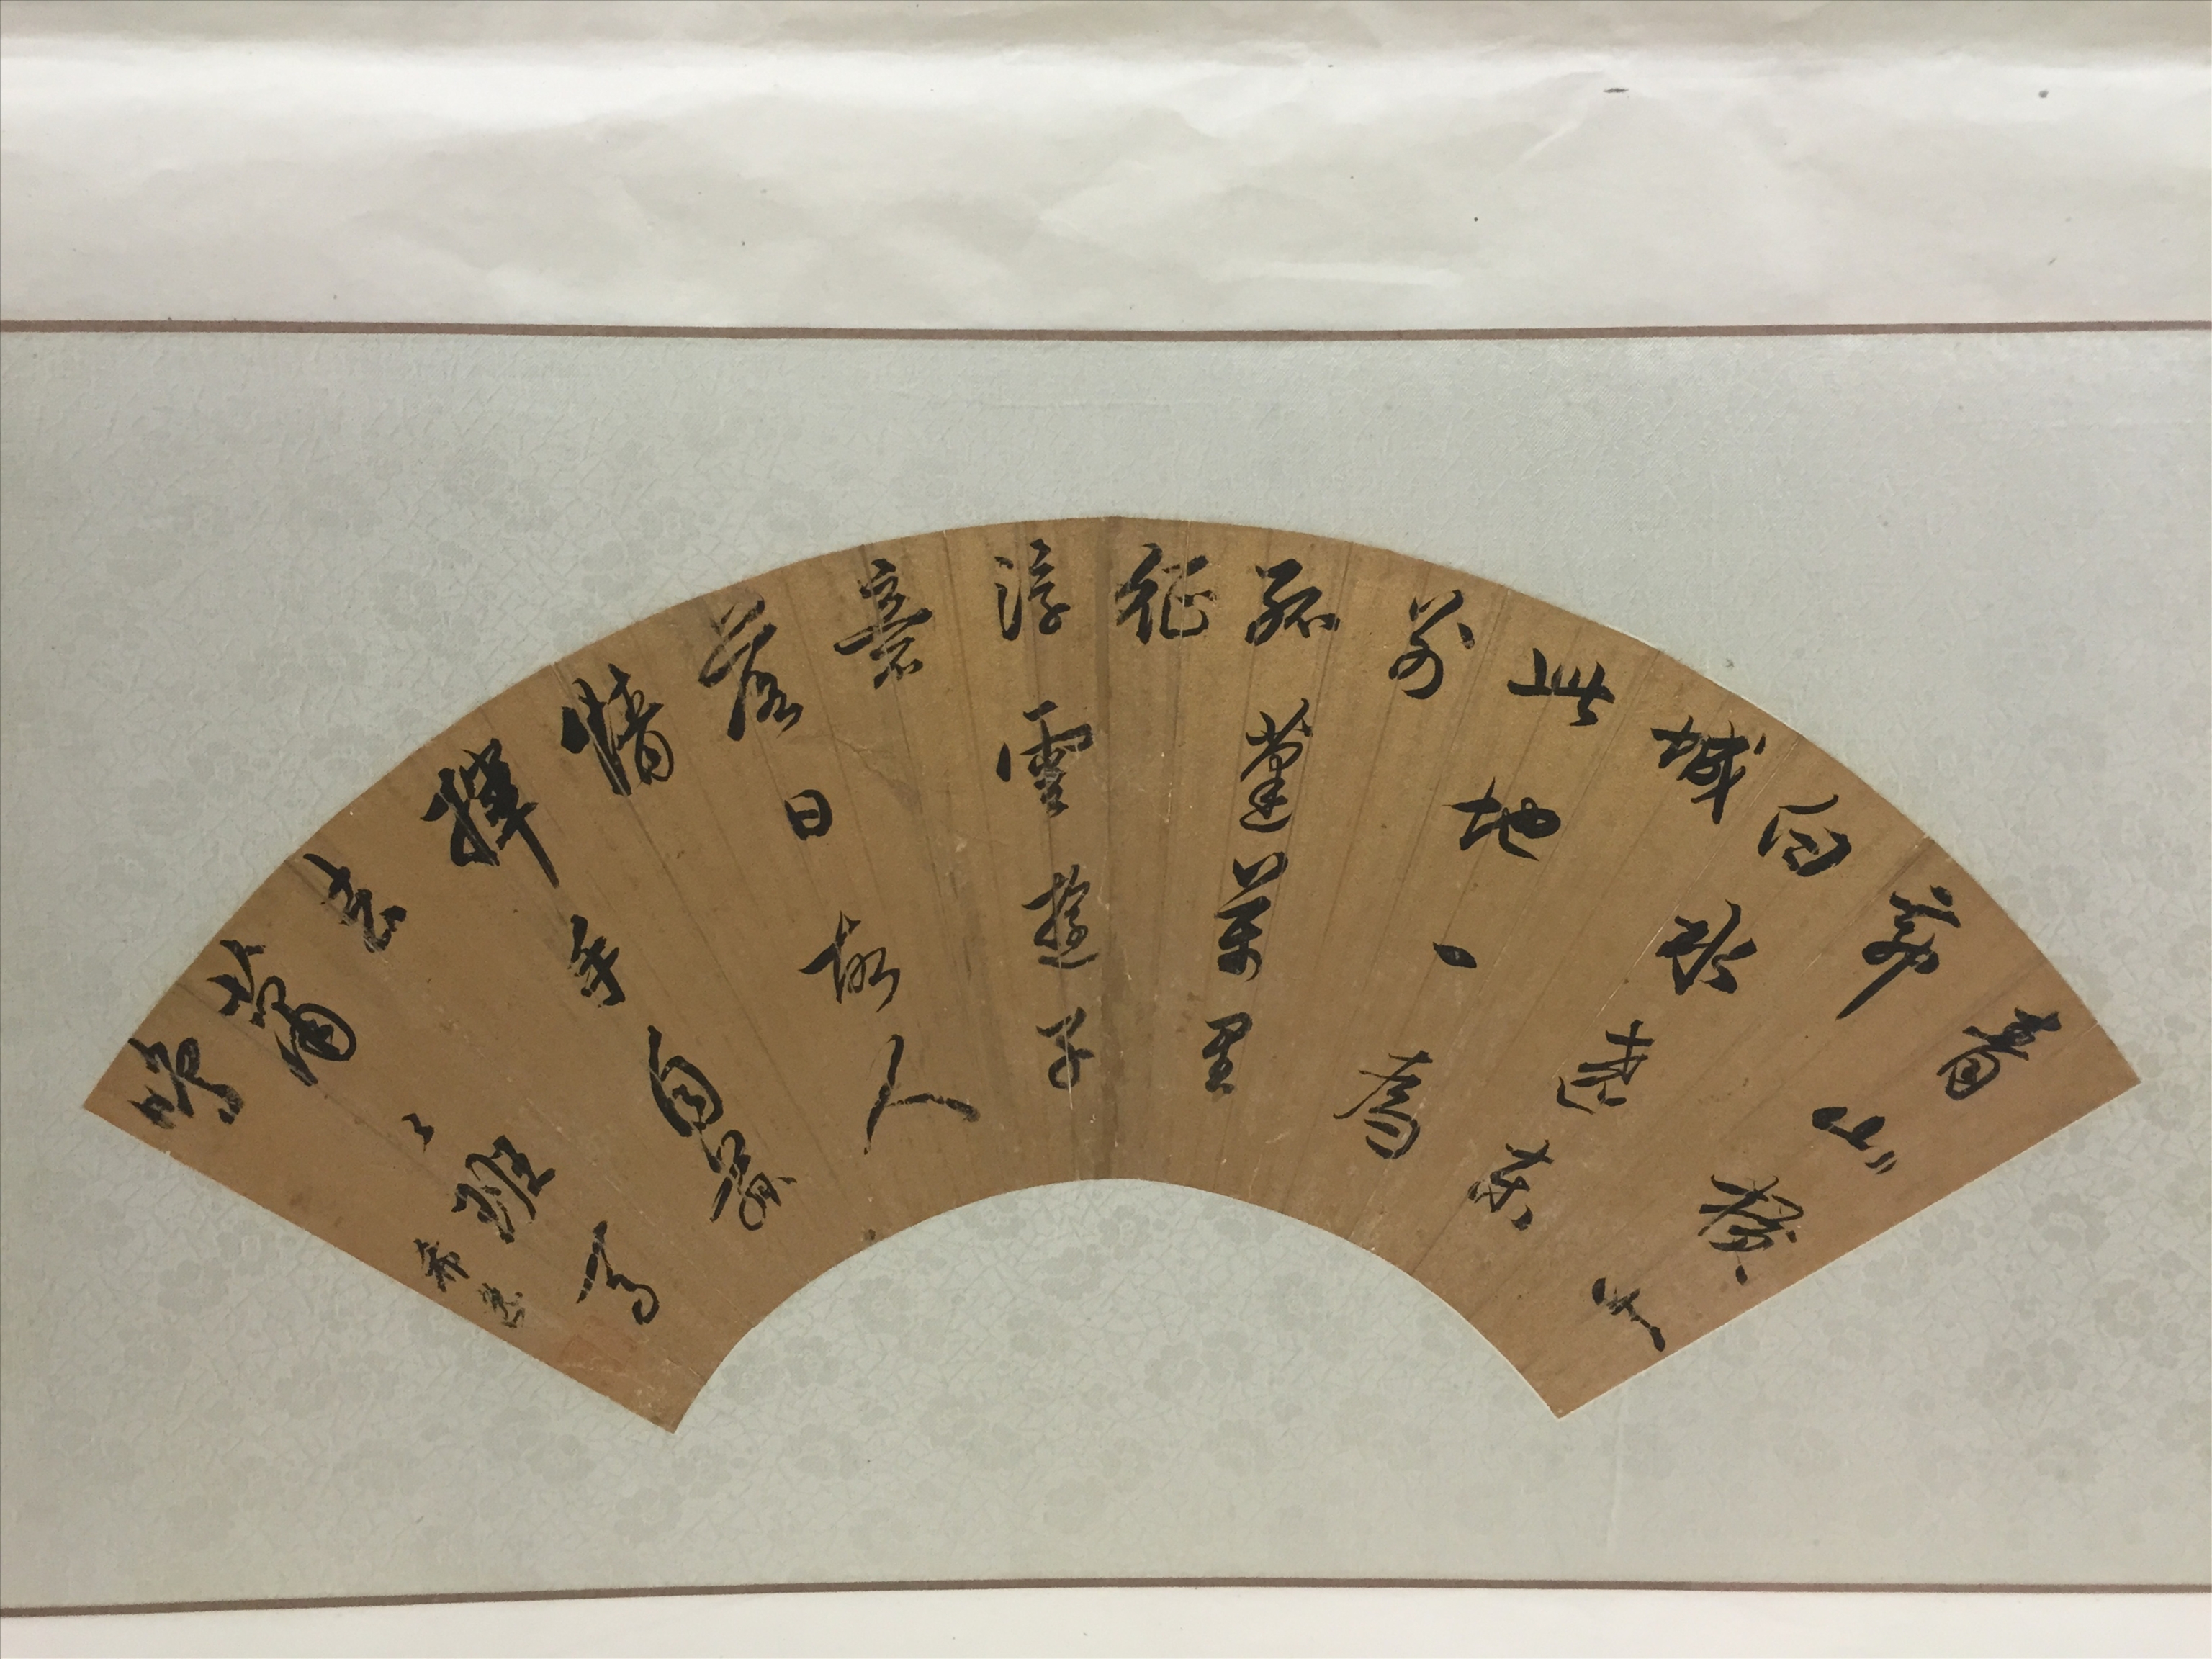 青山橫北
郭
白水遶東
城
此地一為
別
孤蓬萬里
征
浮雲遊子
意
落日故人
情
揮手自茲
去
蕭〻班馬
鳴